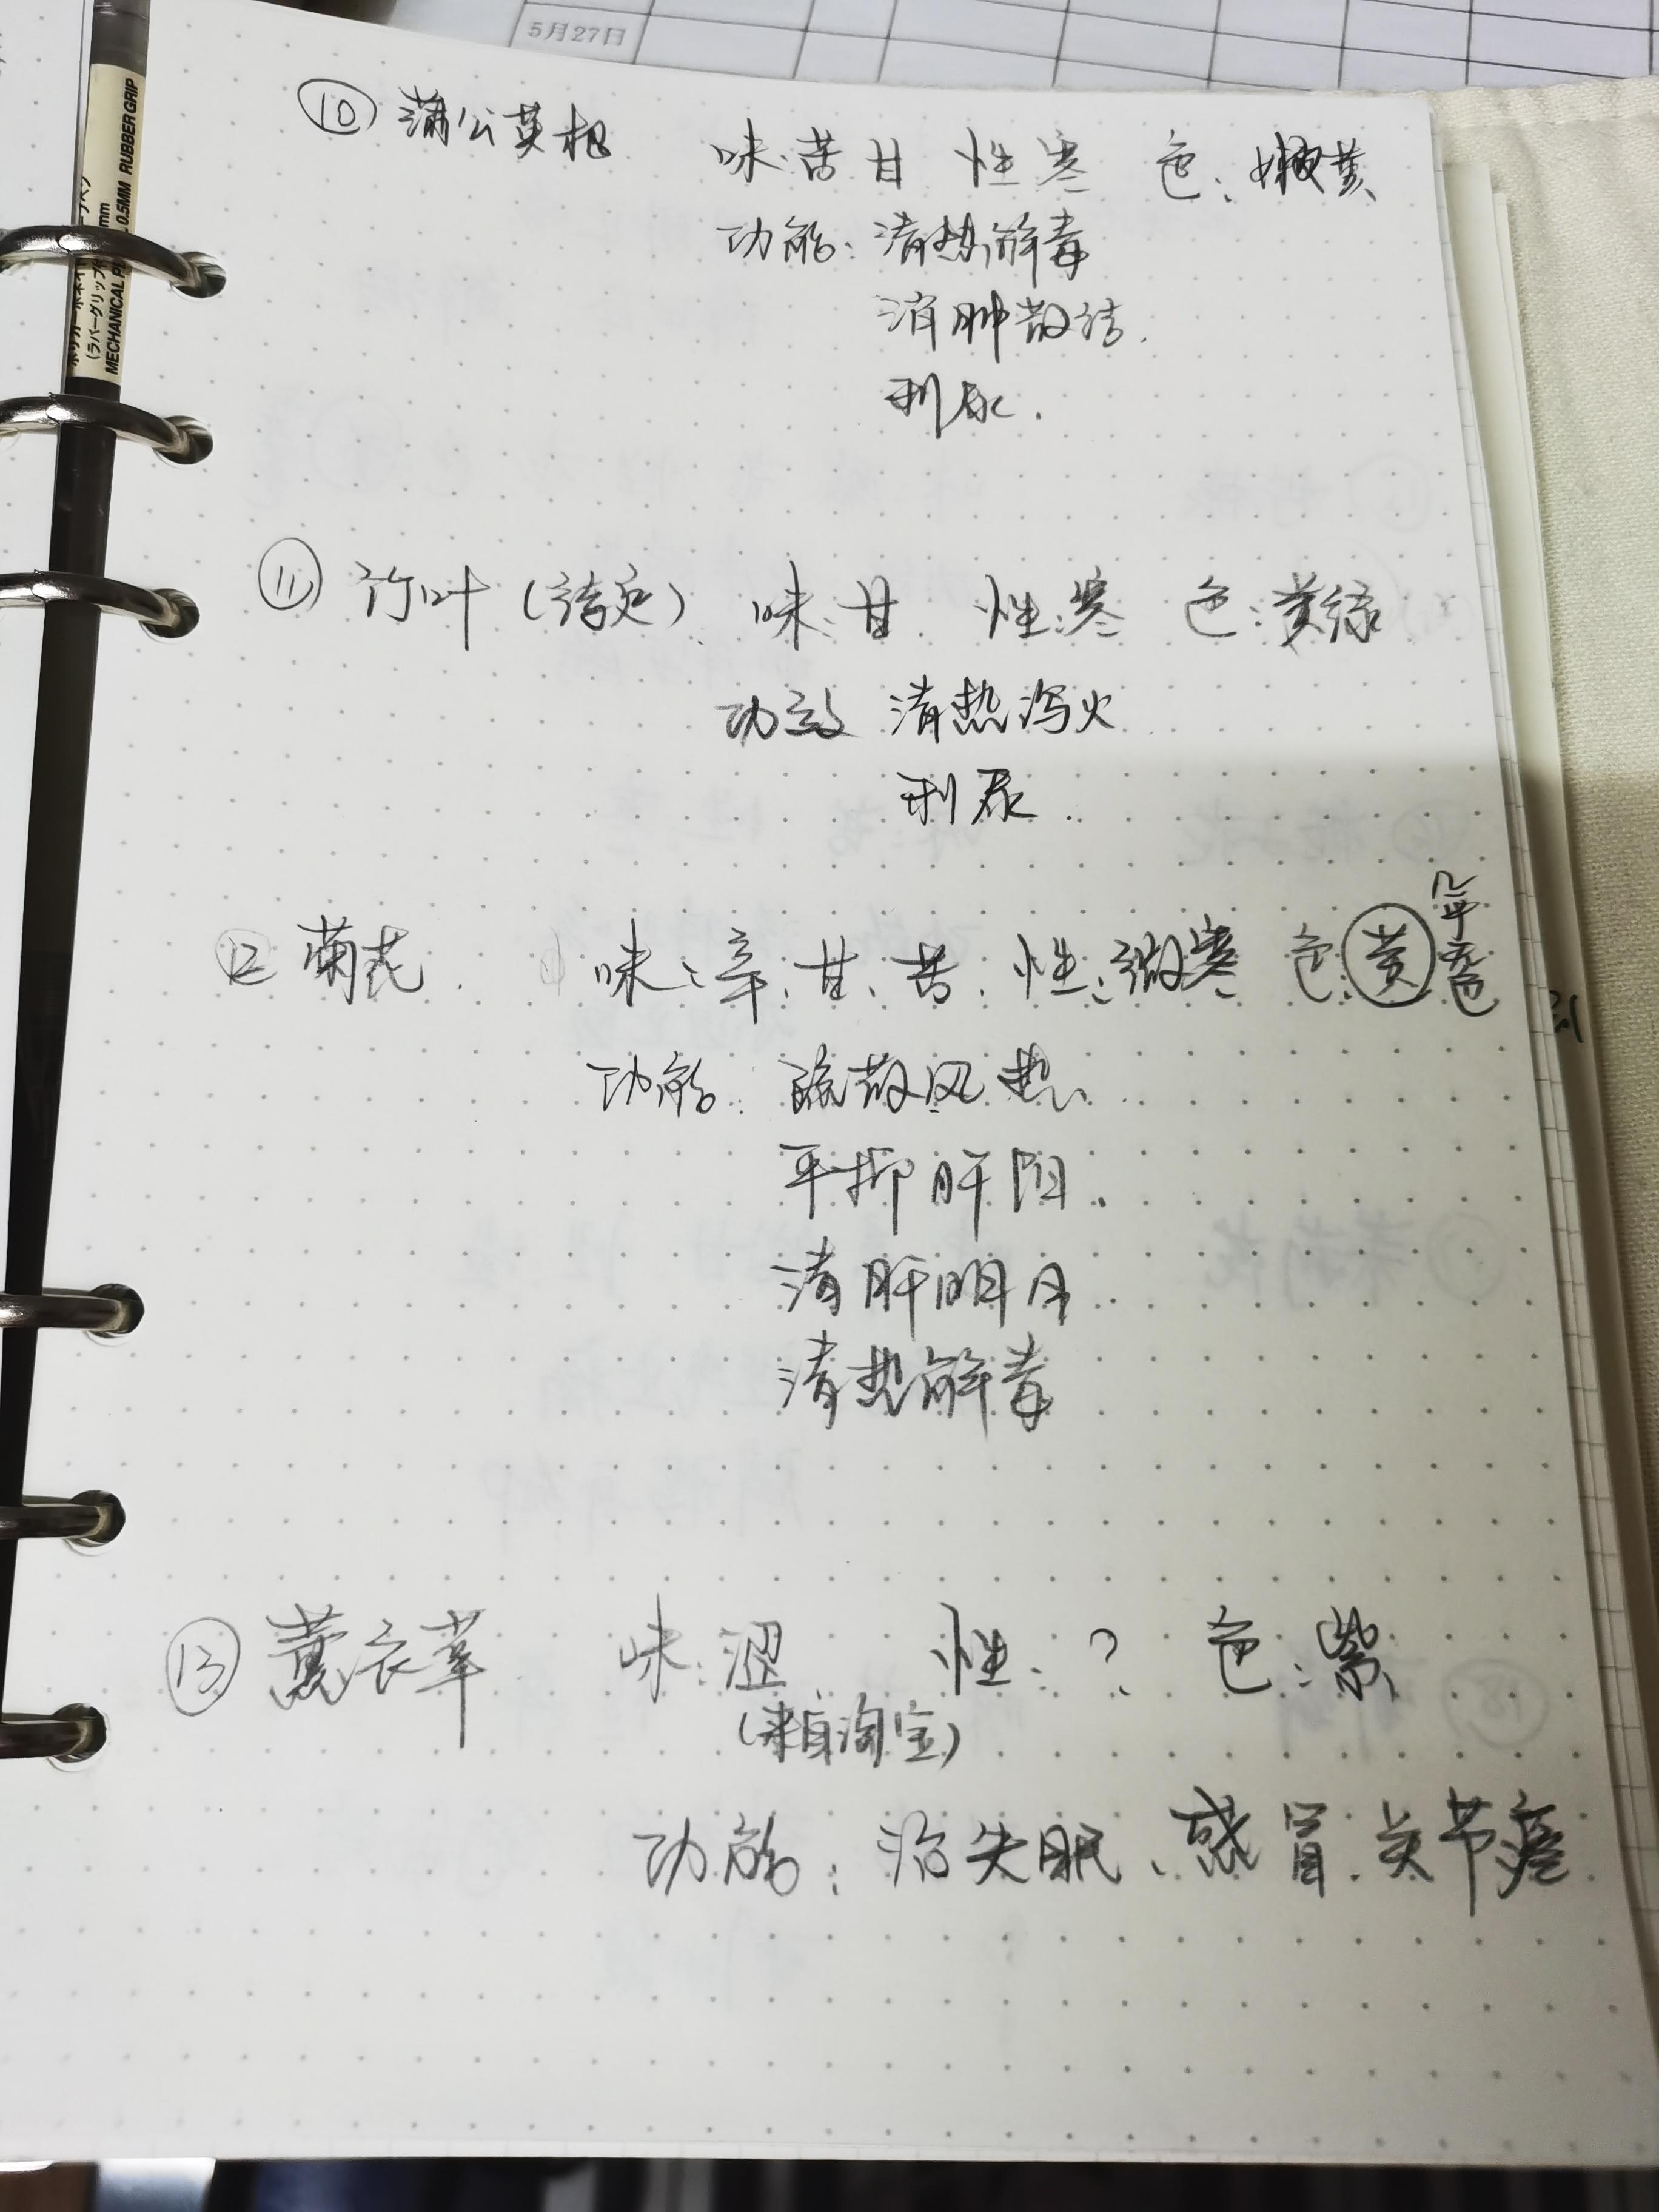 5月27日
MECHANICAL 0.5MM RUBBER GRIP
(ラバーグリップ
mm
⑩ 蒲公英根 味:苦甘 性:寒 色:嫩黄
功能:清热解毒
消肿散结.
利尿.
⑪ 竹叶 味:甘 性:寒 色:黄绿
功效 清热泻火
利尿
⑫ 菊花 味:辛、甘、苦 性:微寒 色:黄
功能:疏散风热
平抑肝阳
清肝明目
清热解毒
⑬ 薰衣草 味:涩 性:? 色:紫
(来自淘宝)
功能:治失眠、感冒、关节疼